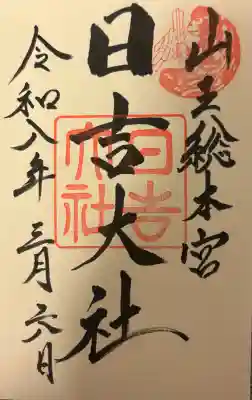 山王総本宮
日吉大社
令和八年三月六日
日吉大社